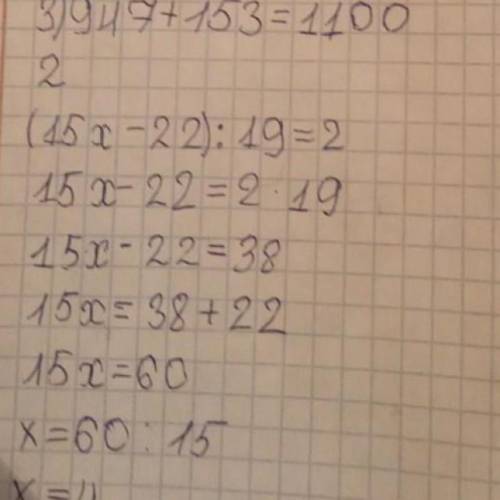 3) 947 + 153 = 1100
2
(15x - 22) : 19 = 2
15x - 22 = 2 · 19
15x - 22 = 38
15x = 38 + 22
15x = 60
x = 60 : 15
x = 4